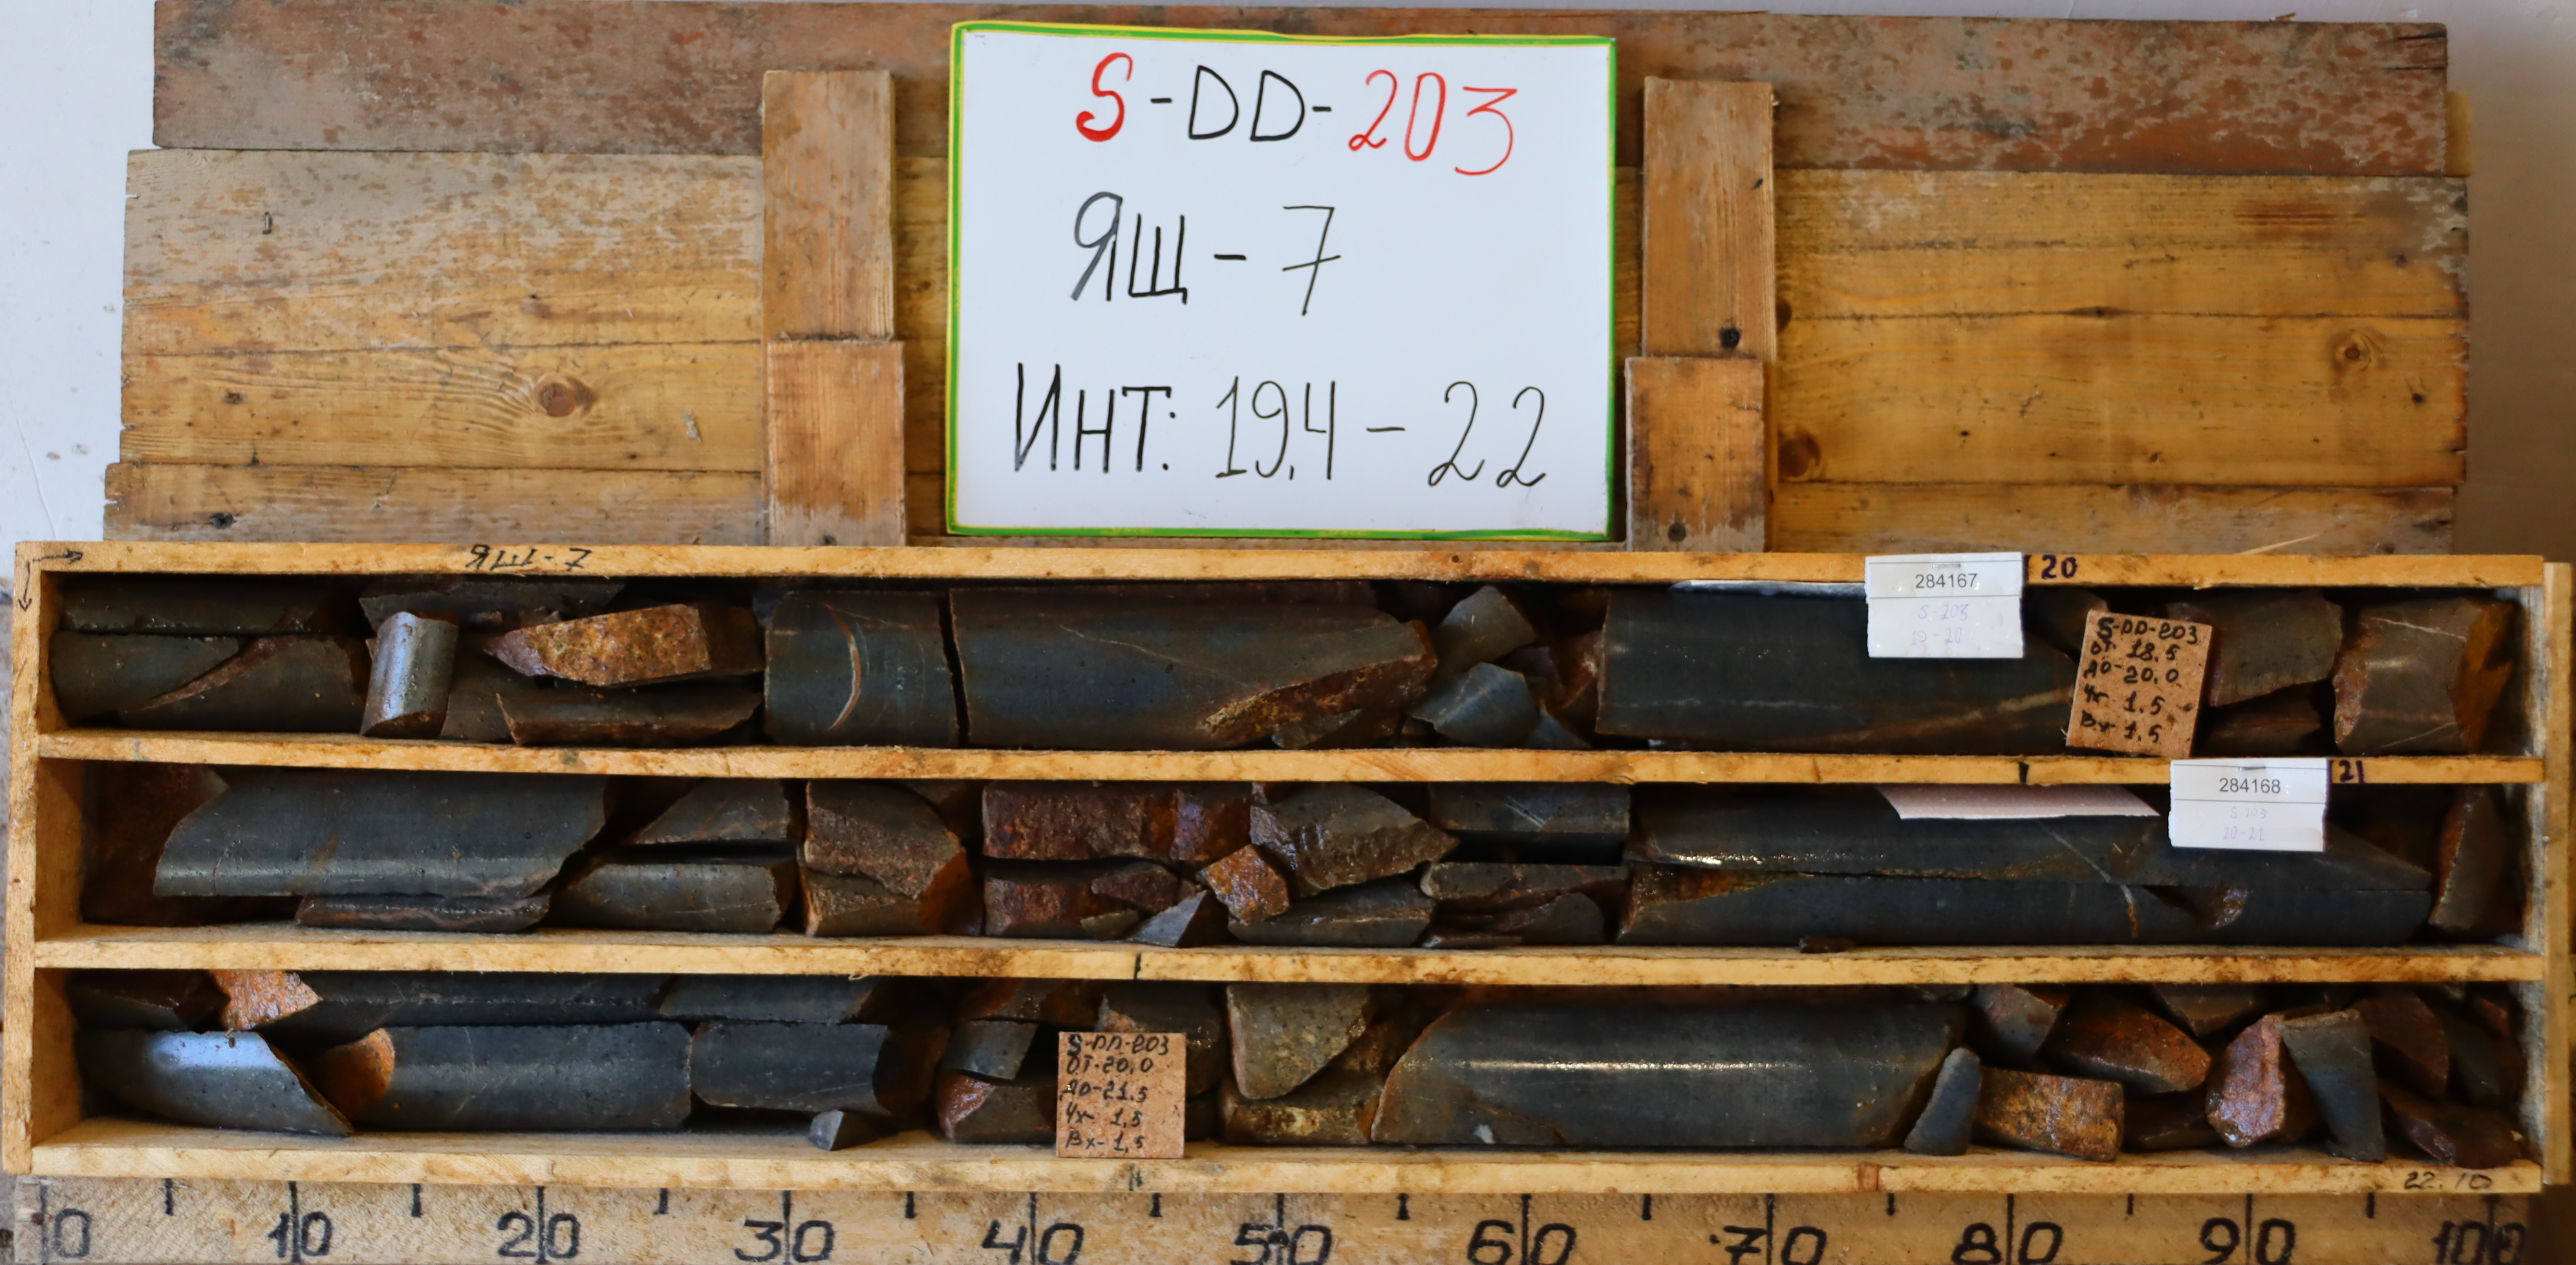 S-DD-203
ЯЩ-7
ИНТ: 19,4-22
ЯЩ-7
20
284167
S-203
19-20
S-DD-203
ОТ 18.5
ДО-20,0
Ух 1,5
Вх-1,5
21
284168
S-203
20-21
S-DD-203
ОТ-20,0
ДО-21.5
Ух-1,5
Вх-1,5
22.10
0 10 20 30 40 50 60 70 80 90 100